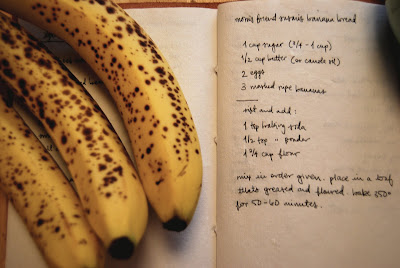 mom's friend naomi's banana bread
1 cup sugar (3/4 - 1 cup)
1/2 cup butter (or canola oil)
2 eggs
3 mashed ripe bananas
sift and add:
1 tsp baking soda
1/2 tsp " powder
1 3/4 cup flour
mix in order given. place in a loaf
greased and floured. bake 350°
for 50-60 minutes.